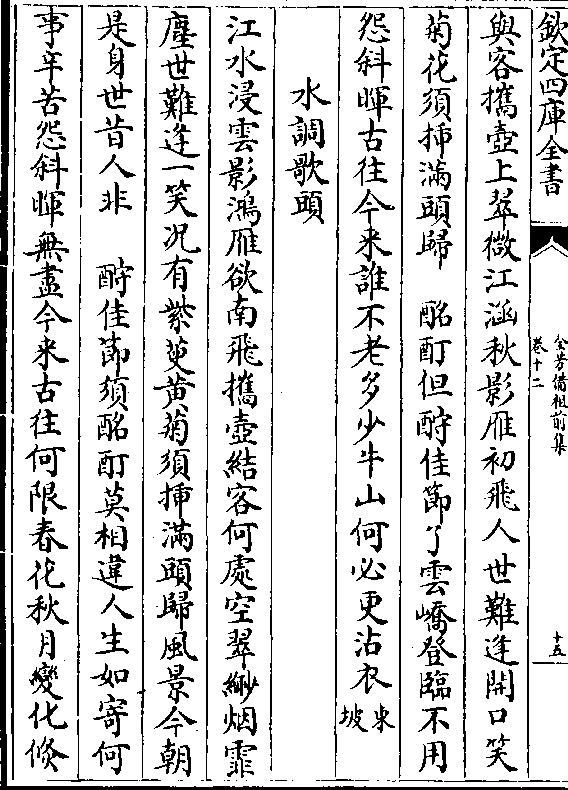 欽定四庫全書
全芳備祖前集
卷十二
十五
與客攜壺上翠微江涵秋影雁初飛人世難逢開口笑
菊花須揷滿頭歸　酩酊但酧佳節了雲嶠登臨不用
怨斜暉古往今來誰不老多少牛山何必更沾衣東坡
水調歌頭
江水浸雲影鴻雁欲南飛攜壺結客何處空翠緲烟霏
塵世難逢一笑况有紫萸黃菊須揷滿頭歸風景今朝
是身世昔人非　酧佳節須酩酊莫相違人生如寄何
事辛苦怨斜暉無盡今來古往何限春花秋月變化倐